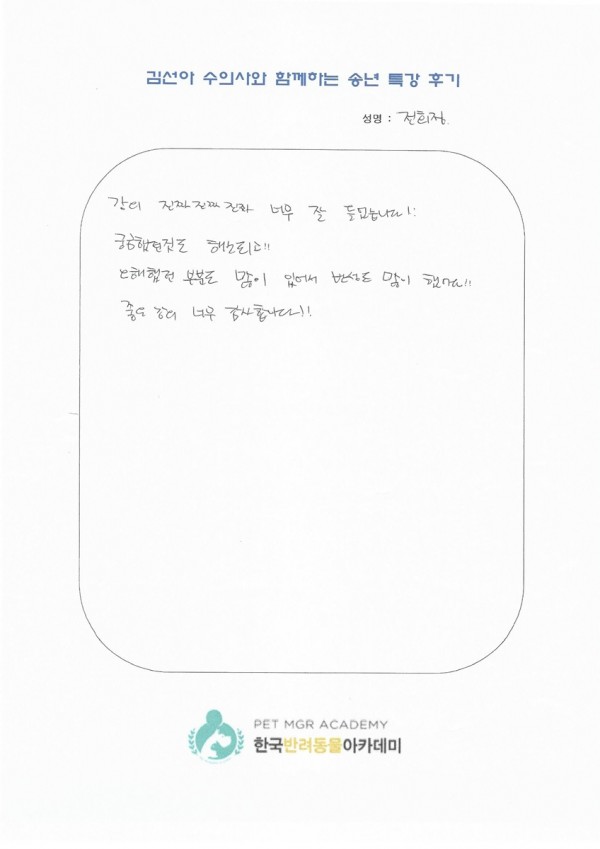 김선아 수의사와 함께하는 송년 특강 후기
성명 : 전희정
강의 진짜진짜진짜 너무 잘 들었습니다!!
궁금했던것도 해소되고!!
오해했던 부분도 많이 있어서 반성도 많이 했어요!!
좋은 강의 너무 감사합니다!!
PET MGR ACADEMY
한국반려동물아카데미